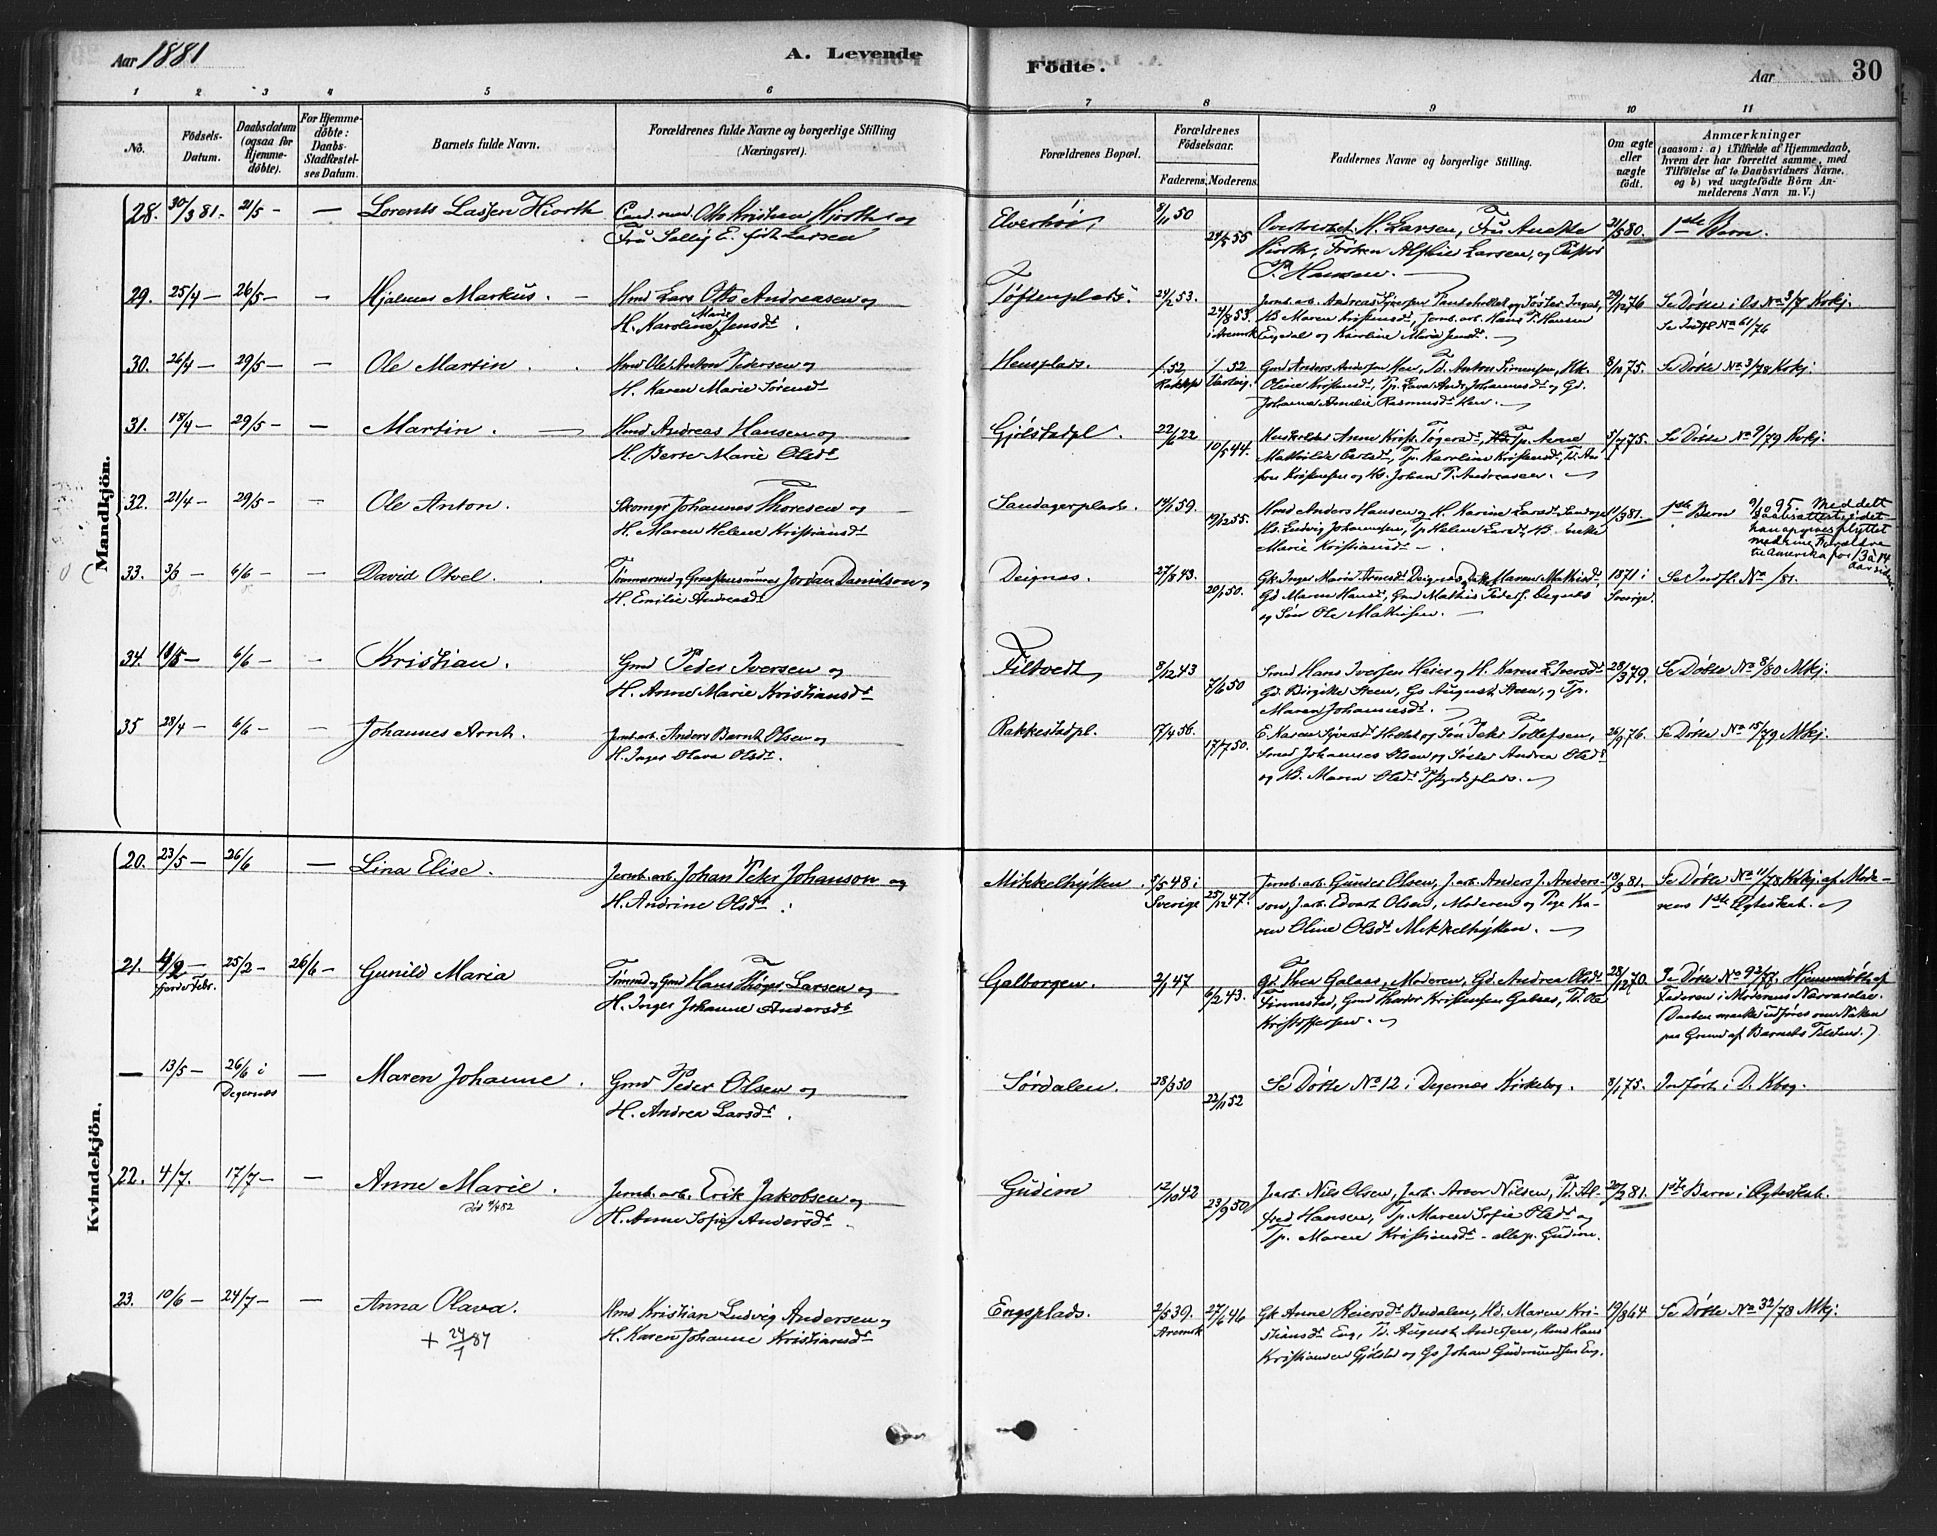 Aar 1881
A. Levende
Födte.
Aar
30
1 2 3 4 5 6
7 8 9 10 11
No.
Födsels-
Datum.
Daabsdatum
(ogsaa for
Hjemme-
döbte).
For Hjemme-
döbte:
Daabs-
Stadfæstel-
ses Datum.
Barnets fulde Navn.
Forældrenes fulde Navne og borgerlige Stilling
(Næringsvei).
Forældrenes Bopæl.
Forældrenes
Födselsaar.
Faderens. Moderens.
Faddernes Navne og borgerlige Stilling.
Om ægte
eller
uægte
födt.
Anmærkninger
(saasom: a) i Tilfælde af Hjemmedaab,
hvem der har forrettet samme, med
Tilföielse af to Daabsvidners Navne,
og b) ved uægtefödte Börn An-
melderens Navn m. V.)
Mandkjön.
28. 30/3 81. 21/5 - — Lorents Lassen Hiorth Cand. med. Otto Kristian Hjorth og
Fru Sally E. født Larsen
Elverhöi, 8/11 50 24/5 55
H. Larsen, Fru
Hiorth, Frøken Larsen, og Pastor
P. Hansen.
21/5 80. 1ste Barn.
29. 25/4 — 26/5 - — Hjalmar Markus. Hmd Lars Otto Andreasen og
H. Karoline Marie Jensdt.
Tøftenplads. 24/2 53. 24/8 53.
i Aremrk
Hb. Maren Kristensdt, Jernb. arb. Hans P. Hansen
og Karoline Marie Jensdt.
29/12 76 Se Döbte i Os No 3/7 Kirkj.
Se Indfl. No 61/76
30. 26/4 — 29/5 — — Ole Martin. Hmd Ole Anton Pedersen og
H. Karen Marie Sørensdt
Hensplads. /52 /52
Gmd Anders Andersen Hen, Td. Anton Simensen, Hk.
Oline Kristensdt, Tp. Johannesdt og Gd.
Johanne Amelie Rasmusdt Hen.
8/10 75. Se Döbte No 3/78 Kirkj.
31. 18/4 — 29/5 — — Martin. Hmd Andreas Hansen og
H. Berte Marie Olsdt
Gjølstadpl. 22/6 22 10/5 44.
Mathilde Tp. Karoline Kristensdt, Td. An-
ton Kristensen og Hs. Johan P. Andreasen.
5/7 75. Se Döbte No 9/79 Kirkj.
32. 21/4 — 29/5 — — Ole Anton. Skomgr Johannes Thoresen og
H. Maren Helene Kristiansdt
Sandagerplads. 14/1 59. 19/12 55.
Hmd Anders Hansen og H. Karine Larsdt
Hs. Ludvig Johannesen, Tp. Helene Larsdt, Hb. Enke
Marie Kristiansdt.
11/3 81. 1ste Barn 9/10 95. Meddelt
Daabsattest, idet
han opgives flyttet
med sine Forældre
til Amerika for 13 à 14
Aar siden.
33. 3/5 — 6/6 — — David Otvel. Tømmermd og Jordan Danielson og
H. Emilie Andreasdt
Deignes. 27/8 43. 20/1 50.
Gk. Inger Marie Arnesdt Deignes, Datter Maren Mathisdt,
Gd. Maren Hansdt, Gmd Mathis Peders. Degnes
og Søn Ole Mathisen.
1871 i
Sverige. Se Indfl. No /81.
34. 18/5 — 6/6 — — Kristian. Gmd Peder Iversen og
H. Anne Marie Kristiansdt
Filtvedt, 8/12 43 7/6 50
Smd Hans Iversen Heser og H. Karen L. Iversdt
Gd. Birgitte Hven, Gs. August Hven, og Tp.
Maren Johannesdt.
28/3 79. Se Döbte No 8/80 Mkj.
35 28/4 — 6/6 — — Johannes Arnt. Jernb. arb. Anders Bernt Olsen og
H. Inger Olava Olsdt.
Rakkestadpl. 17/4 56. 17/7 50.
Søn Peter Tollefsen,
Smd Johannes Olsen og Søster Andrea Olsdt
og Hb. Maren Olsdt
26/9 76. Se Döbte No 15/79 Mkj.
Kvindekjön.
20. 23/5 — 26/6 — Lina Elise. Jernb. arb. Johan Peter Johanson og
H. Andrine Olsdt.
Mikkelhytten. 5/5 48 i
Sverige 25/12 47.
Jernb. arb. Gunder Olsen, J. arb. Anders J. Anders-
son, J. arb. Edvart Olsen, Moderen og Pige Ka-
ren Oline Olsdt Mikkelhytten.
13/3 81. Se Döbte No 11/78 Kirkj. af Mode-
rens 1ste Ægteskab.
21. 4/2 —
Febr. 25/2 - 26/6 — Gunild Maria Tømmd og Gmd Hans Thøger Larsen og
H. Inger Johanne Andersdt
Galborgen. 2/1 47 6/2 43.
Gd. Thea Galaas, Moderen, Gd. Andrea Olsdt
Finnestad, Gmd Thodor Kristensen Galaas, Td. Ole
Kristoffersen.
28/12 70. Se Döbte No Hjemmedöbt af
Faderen i Moderens Nærværelse.
(Daaben maatte udföres om Natten
paa Grund af Barnets Tilstand.)
— 13/5 — 26/6 i
Degernæs — Maren Johanne. Gmd Peder Olsen og
H. Andrea Larsdt.
Sørdalen. 28/3 50 22/11 52
Se Döbte No 12 i Degernæs Kirkebog. 8/1 75. Indført i D. Kbog.
22. 4/7. 17/7 — — Anne Marie. Jernb. arb. Erik Jakobsen og
Död 82
H. Anne Sofie Andersdt.
Gudim 12/10 42 23/9 50
J. arb. Nils Olsen, J. arb. Aron Nilsen, Td. Al-
fred Hansen, Tp. Maren Sofie Olsdt og
Tp. Maren Kristiansdt - alle p. Gudim.
20/2 81. 1ste Barn i Ægteskab.
23. 10/6 — 24/7 — — Anna Olava. Hmd Kristian Ludvig Andersen og
+ 24/1 87
H. Karen Johanne Kristiansdt
Engsplads. 2/5 39.
Aremrk 27/6 46
Gk. Anne Reiersdt Budalen, Hb. Maren Kri-
stiansdt Eng, Td. August Andersen, Hmd Hans
Kristiansen Gjölstad og Gs. Johan Gudmundsen Eng.
19/8 64 Se Döbte No 32/78 Mkj.